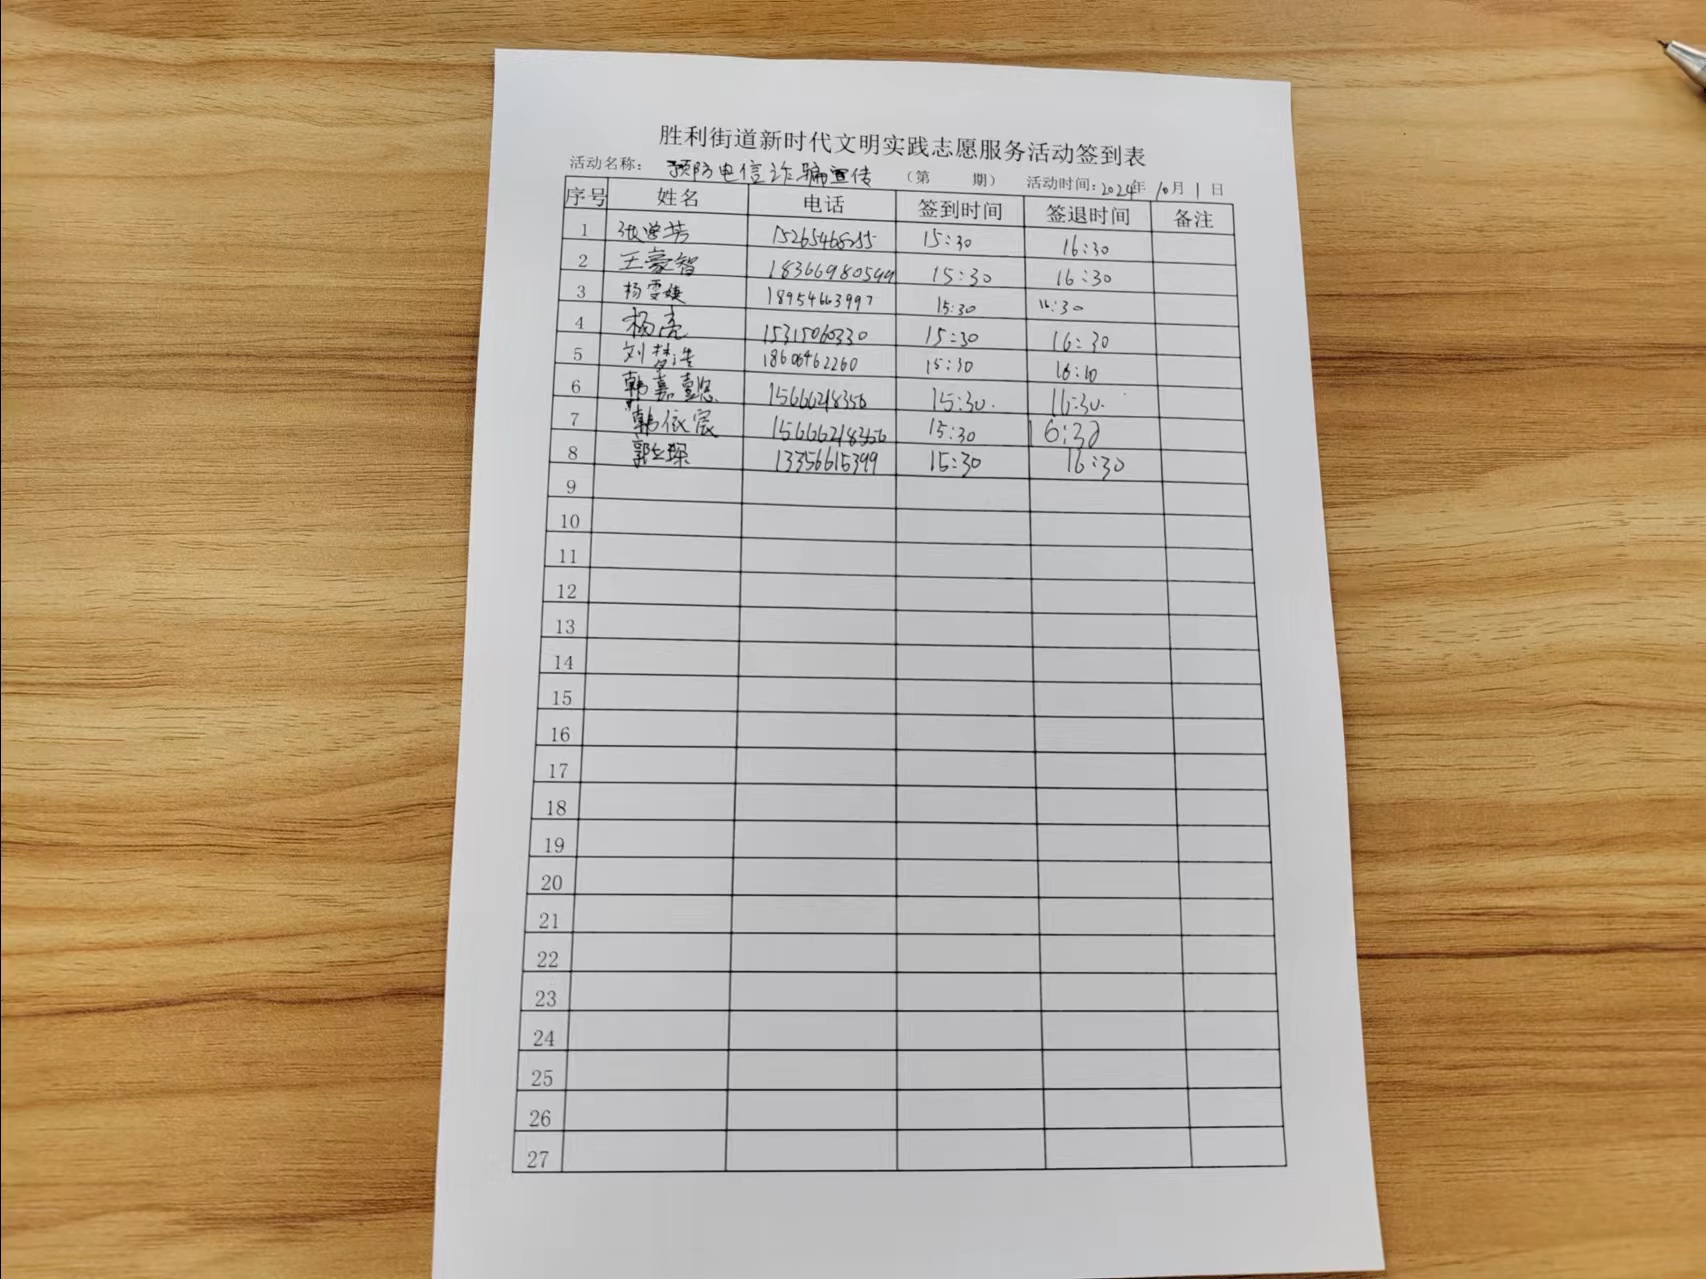 胜利街道新时代文明实践志愿服务活动签到表
活动名称： 预防电信诈骗宣传 （第 期） 活动时间：2024年10月1日
序号 姓名 电话 签到时间 签退时间 备注
1 张学芳 15:30 16:30
2 王豪智 18366980599 15:30 16:30
3 杨雯婕 18954663997 15:30 16:30
4 杨亮 15315060330 15:30 16:30
5 刘梦浩 18606462260 15:30 16:10
6 韩嘉 15666218356 15:30. 16:30.
7 韩依宸 15666218356 15:30 16:30
8 郭 琛 13356615399 15:30 16:30
9
10
11
12
13
14
15
16
17
18
19
20
21
22
23
24
25
26
27